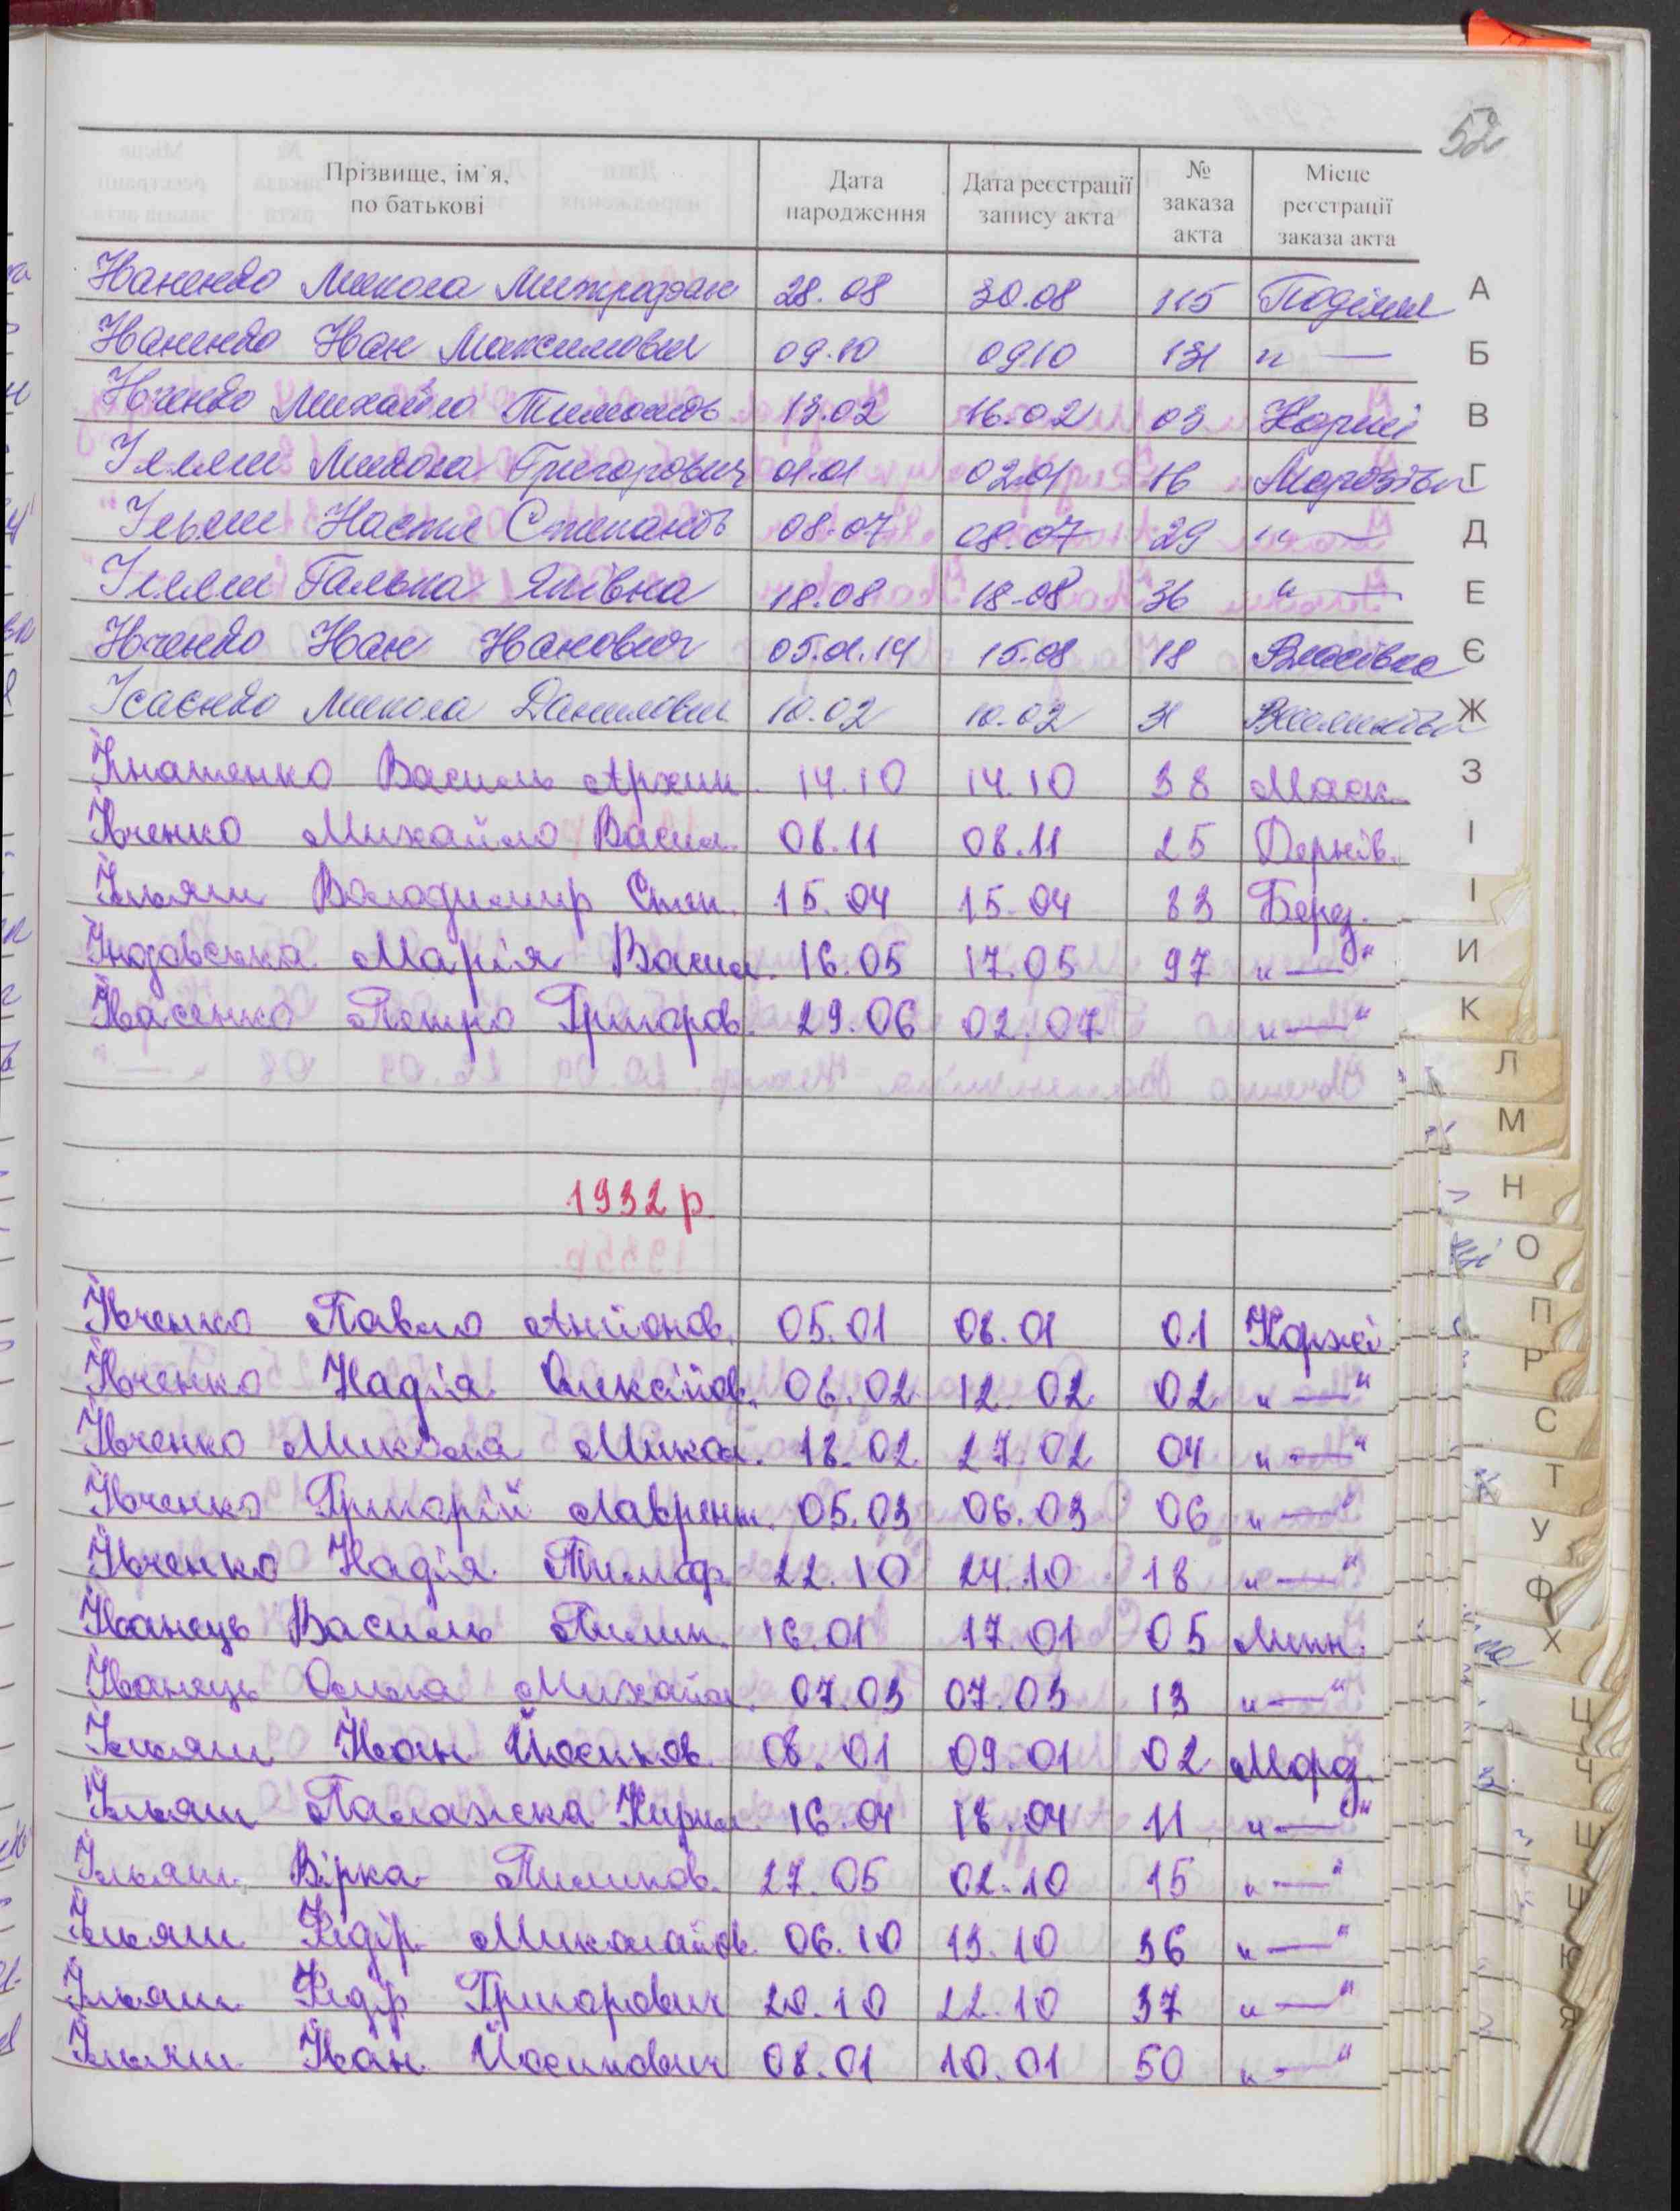 52
Прізвище, ім'я, по батькові Дата народження Дата реєстрації запису акта № заказа акта Місце реєстрації заказа акта
Іваненко Микола 28.08 30.08 115 Поділля
Іваненко Іван Максимович 09.10 09.10 131 "—
Івченко Михайло Тимохв 13.02 16.02 03 Коржі
Ілляш Микола Григорович 01.01 02.01 16
Ільяш Настя Степанів 08.07 08.07 29 "—
Ілляш Галька Яківна 18.08 18.08 36 "—
Івченко Іван Іванович 05.01.14 15.08 18 Власівка
Ісаєнко Микола Данилович 10.02 10.02 31
Ігнатенко Василь Архип. 14.10 14.10 38 Маск.
Івченко Михайло Васил. 08.11 08.11 25 Дернів.
Ільяш Володимир Степ. 15.04 15.04 83 Берез.
Марія Васил. 16.05 17.05 97 "—"
Івасенко Петро Григоров. 29.06 02.07 "—"
1932 р.
Івченко Павло Антонов. 05.01 08.01 01 Коржі
Івченко Надія Олексійов. 06.02 12.02 02 "—"
Івченко Микола Микол. 18.02 27.02 04 "—"
Івченко Григорій Лаврент. 05.03 06.03 06 "—"
Івченко Надія Тимоф. 22.10 24.10 18 "—"
Іванець Василь Пилип. 16.01 17.01 05 Лип.
Іванець Ольга Михайл. 07.03 07.03 13 "—"
Ільяш Іван Йосипов. 08.01 09.01 02 Морд.
Ільяш Палажка Кирил. 16.04 18.04 11 "—"
Ільяш Вірка Пилипов. 27.05 02.10 15 "—"
Ільяш Федір Миколайов. 06.10 13.10 36 "—"
Ільяш Федір Григорович 20.10 22.10 37 "—"
Ільяш Іван Йосипович 08.01 10.01 50 "—"
А
Б
В
Г
Д
Е
Є
Ж
З
І
І
И
К
Л
М
Н
О
П
Р
С
Т
У
Ф
Х
Ц
Ч
Ш
Щ
Ю
Я